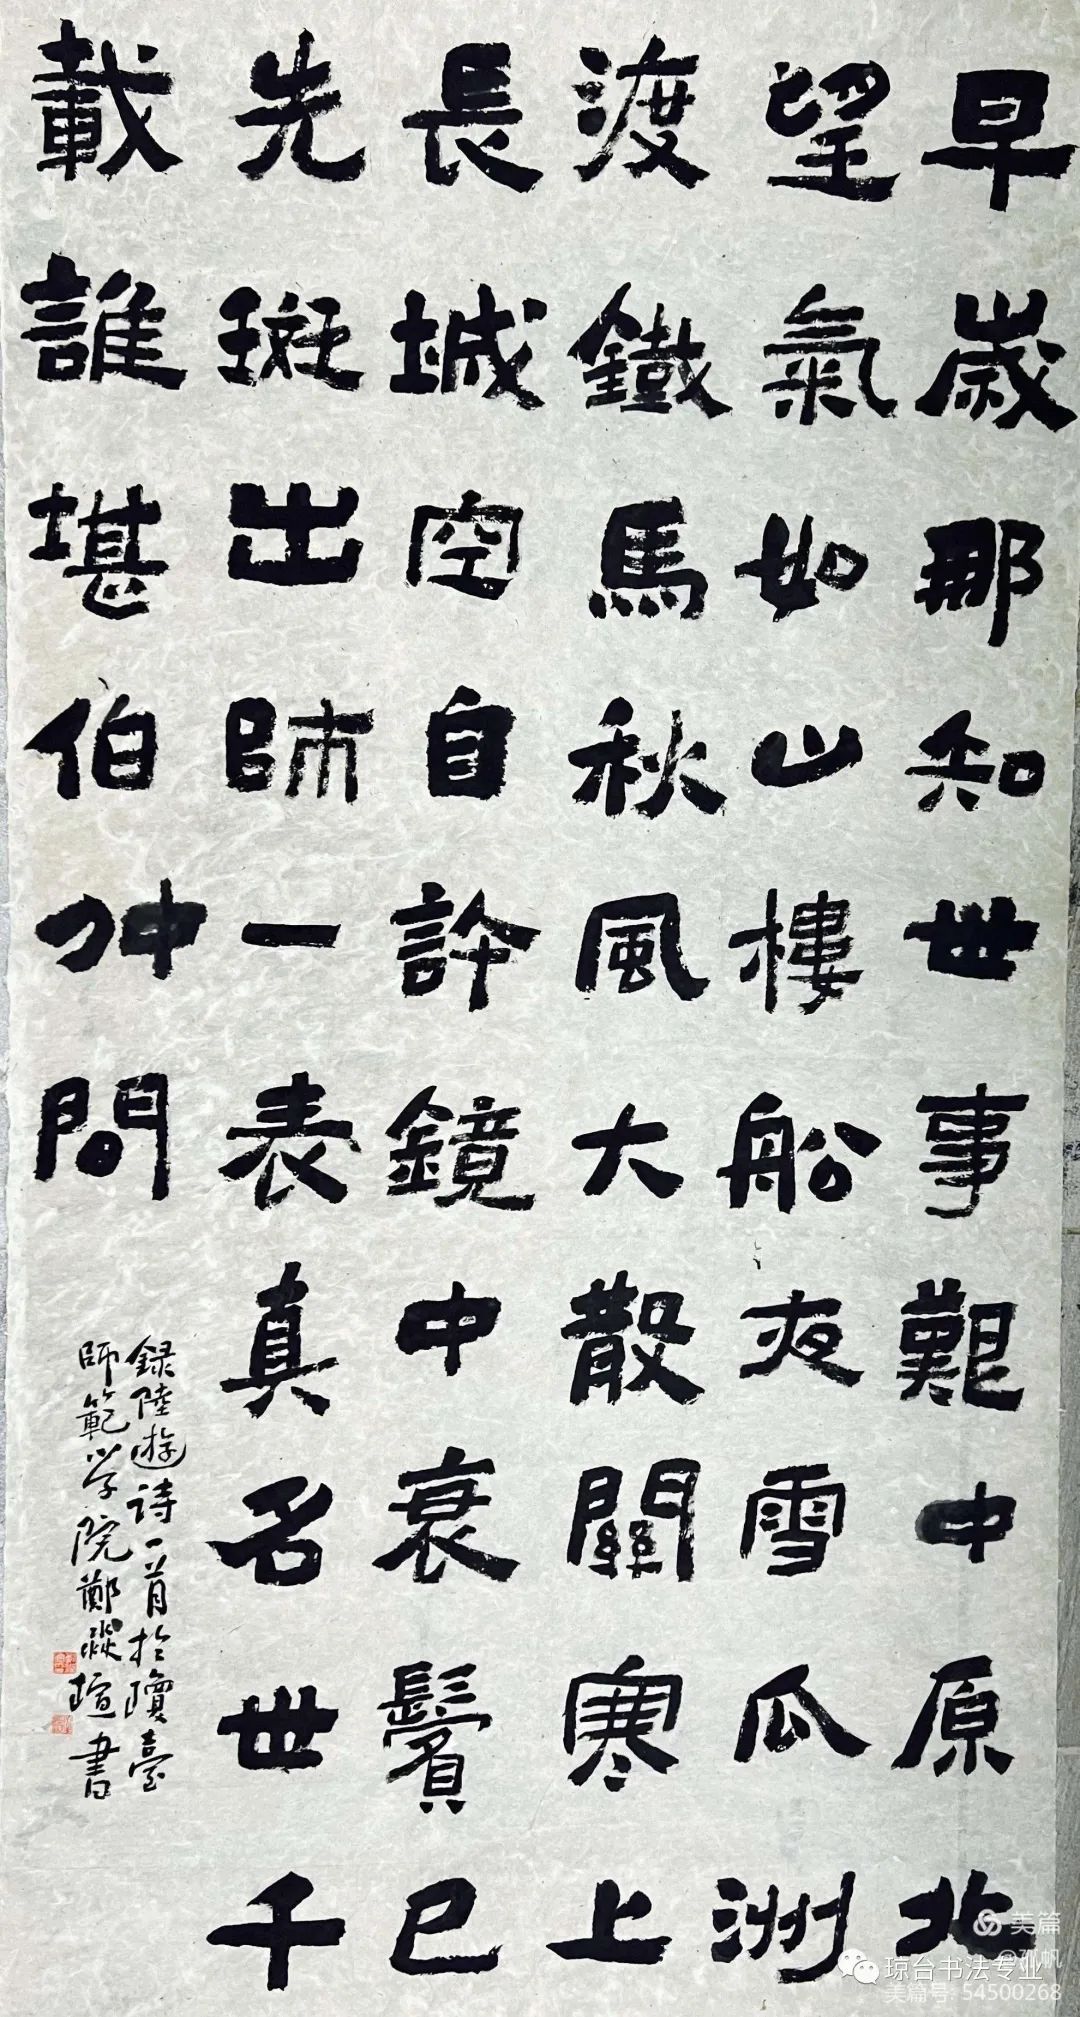 早歲那知世事艱中原北
望氣如山樓船夜雪瓜洲
渡鐵馬秋風大散關寒上
長城空自許鏡中衰鬢已
先斑出師一表真名世千
載誰堪伯仲間
録陸遊詩一首於瓊臺
師範学院鄭瑄書
美篇
@孤帆
琼台书法专业
美篇号: 54500268